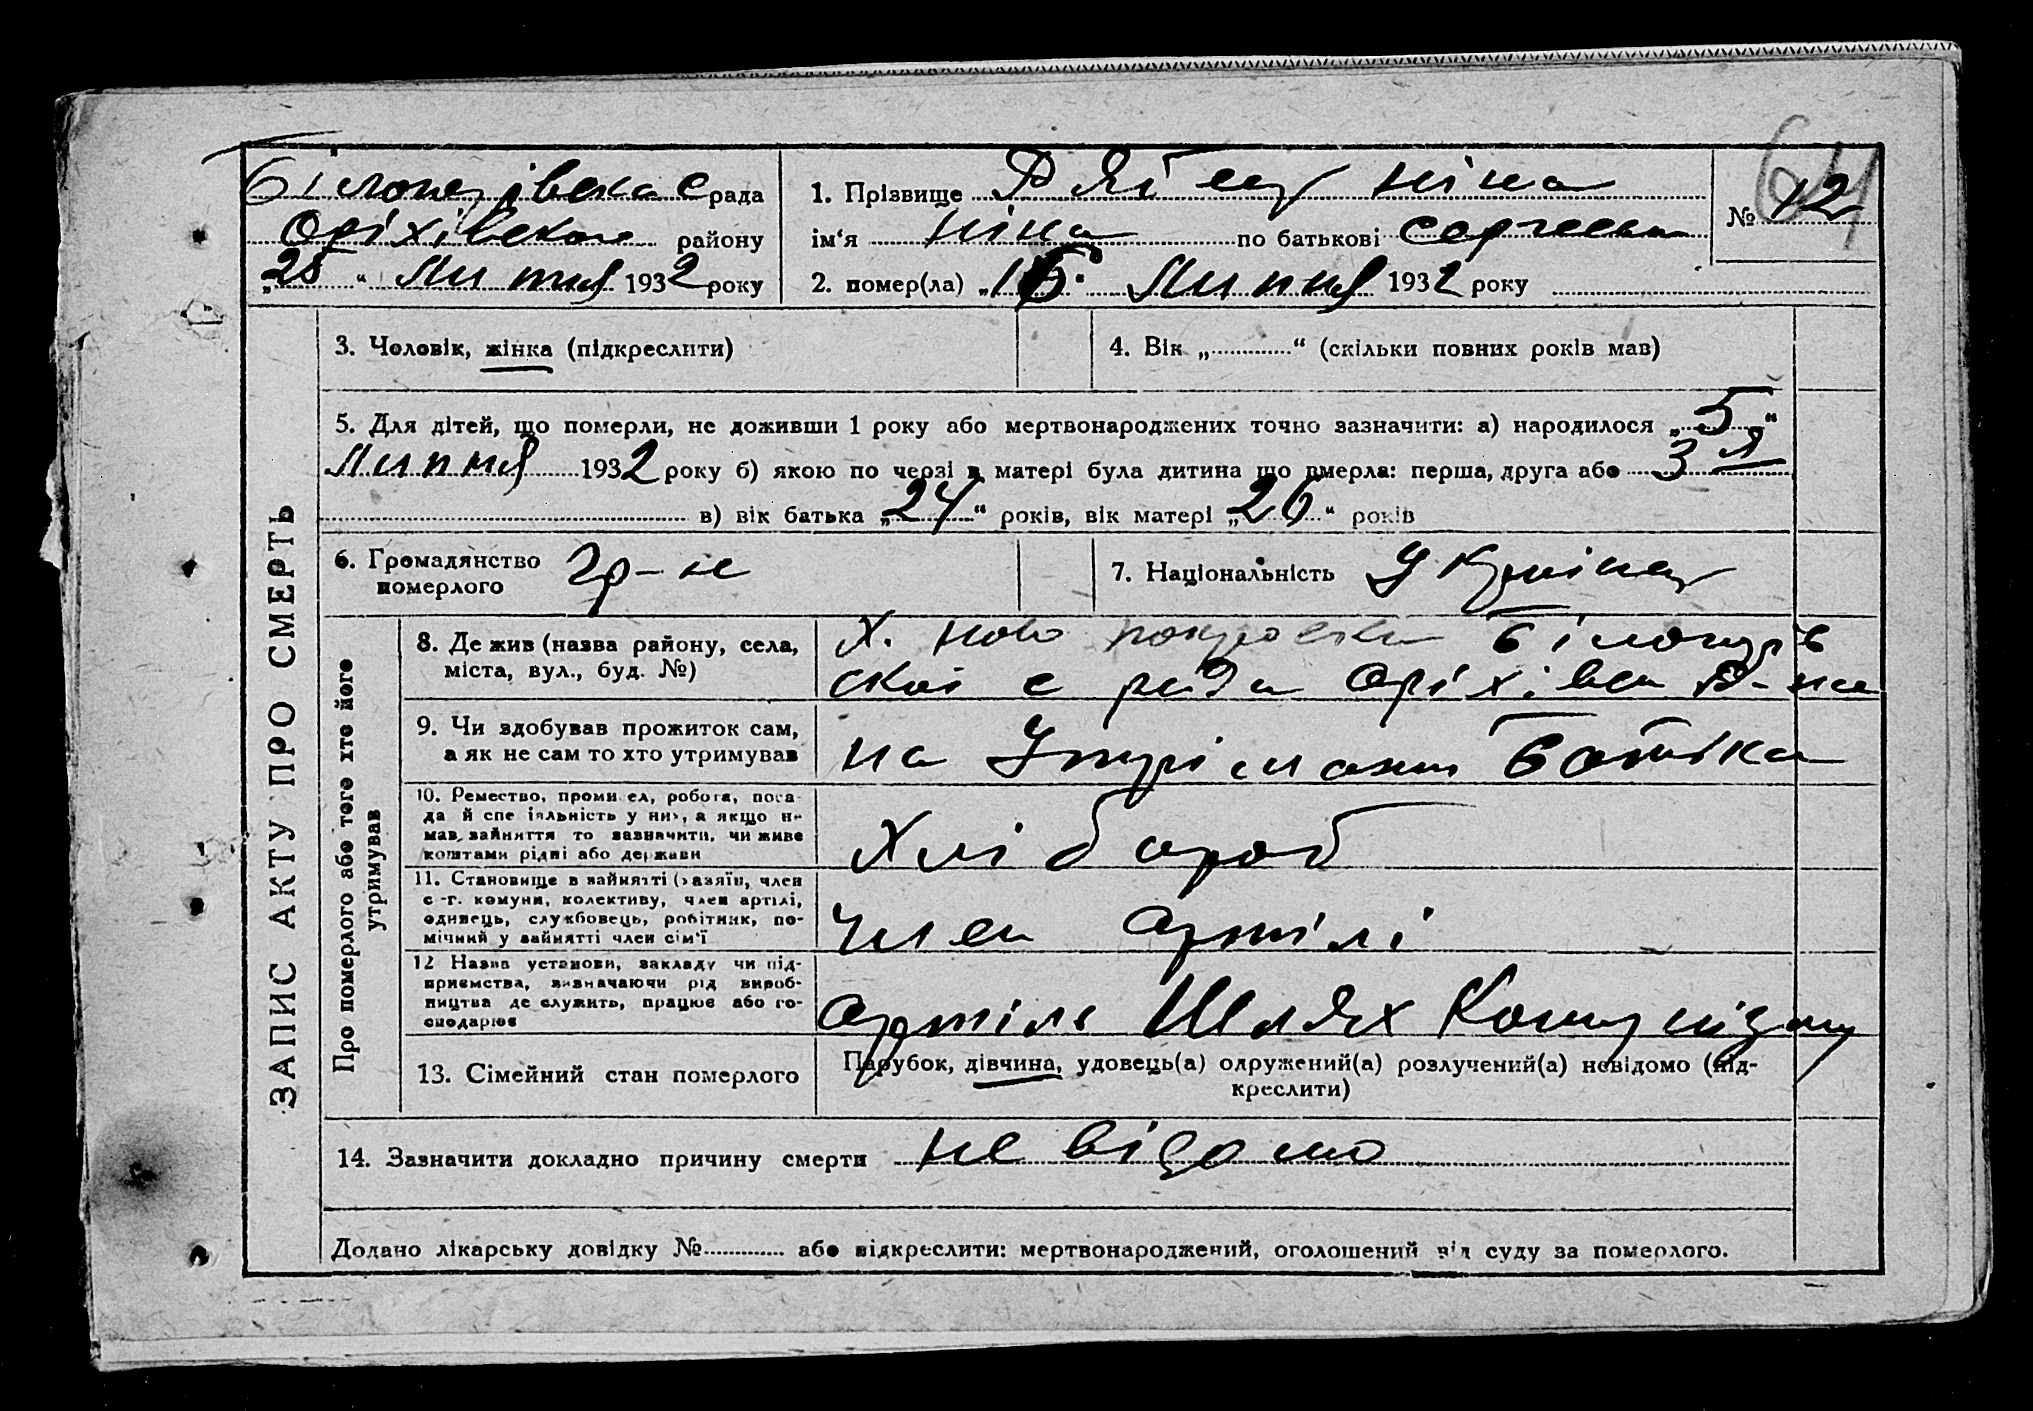 Білоцерківска с рада
Оріхівского району
„25“ Липня 1932 року
1. Прізвище Ніна
ім‘я Ніна по батькові Сергеевн
№ 12
64
2. помер(ла) „16“ Липня 1932 року
3. Чоловік, жінка (підкреслити)
4. Вік „.....“ (скільки повних років мав)
5. Для дітей, що померли, не доживши 1 року або мертвонароджених точно зазначити: а) народилося „5“
Липня 1932 року б) якою по черзі в матері була дитина що вмерла: перша, друга або 3 я
в) вік батька „24“ років, вік матері „26“ років
6. Громадянство померлого гр-не
7. Національність Україн
ЗАПИС АКТУ ПРО СМЕРТЬ
Про померлого або того хто його утримував
8. Де жив (назва району, села,
міста, вул., буд. №)
х. ново покровка
скої с ради Оріхівск р-на
9. Чи здобував прожиток сам,
а як не сам то хто утримував
на Утрімани батька
10. Ремество, промисел, робота, поса-
да й спеціяльність у них, а якщо не
мав зайняття то зазначити, чи живе
коштами рідні або держави
Хлібороб
11. Становище в зайнятті (хазяїн, член
с.-г. комуни, колективу, член артілі,
одинець, службовець, робітник, по-
мічний у зайнятті член сім‘ї
член артілі
12 Назва установи, закладу чи під-
приємства, визначаючи рід вироб-
ництва де служить, працює або го-
сподарює
артіль Шлях Комунізму
13. Сімейний стан померлого
Парубок, дівчина, удовець(а) одружений(а) розлучений(а) невідомо (під-
креслити)
14. Зазначити докладно причину смерти не відомо
Додано лікарську довідку №..... або відкреслити: мертвонароджений, оголошений від суду за померлого.